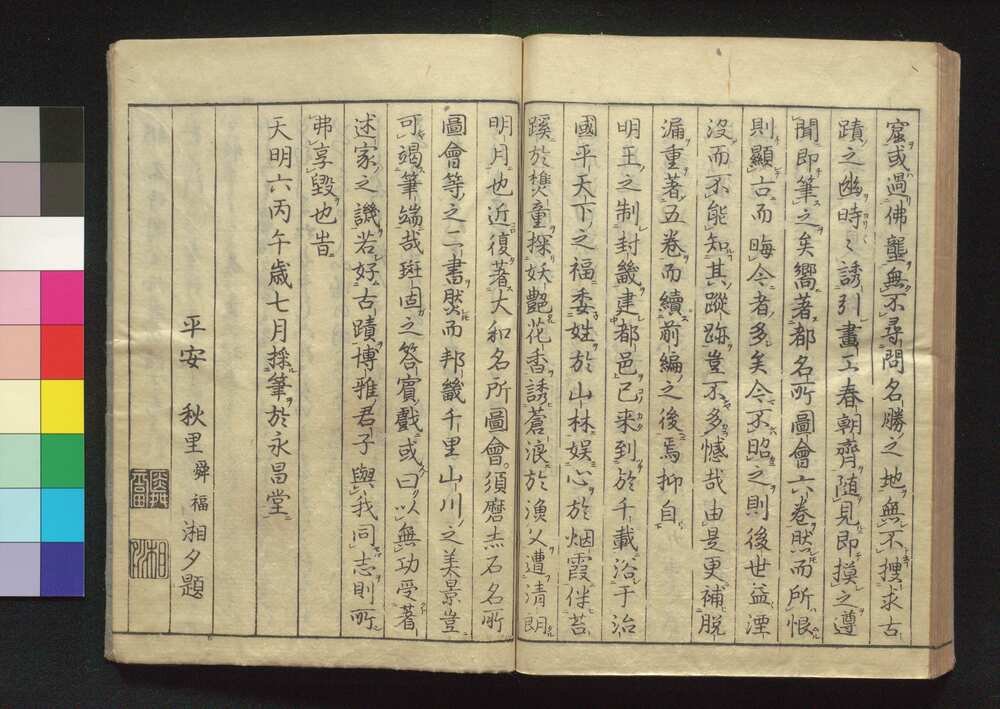 窟或過佛壟無不尋問名勝之地無不捜求古
蹟之幽時〻誘引畫工春朝齊随見即摸之遵
聞即筆之矣嚮著都名所圖會六巻然而所恨
則顯古而晦今者多矣今不昭之則後世益湮
没而不能知其蹤跡豈不多憾哉由是更補脱
漏重著五卷而續前編之後焉抑自
明王之制封畿建都邑已来到於千載浴于治
國平天下之福委姓於山林娯心於烟霞伴苔
蹊於樵童探妖艶花香誘蒼浪於漁父遭清朗
明月也近復著大和名所圖會須磨赤石名所
圖會等之二書然而邦畿千里山川之美景豈
可竭筆端哉班固之答賓戯或曰以無功受著
述家之譏若好古蹟博雅君子與我同志則所
弗享毀也旹
天明六丙午歳七月採筆於永昌堂
平安 秋里舜福湘夕題